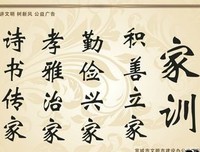 讲文明 树新风 公益广告
家训
积善立家
勤俭兴家
孝雅治家
诗书传家